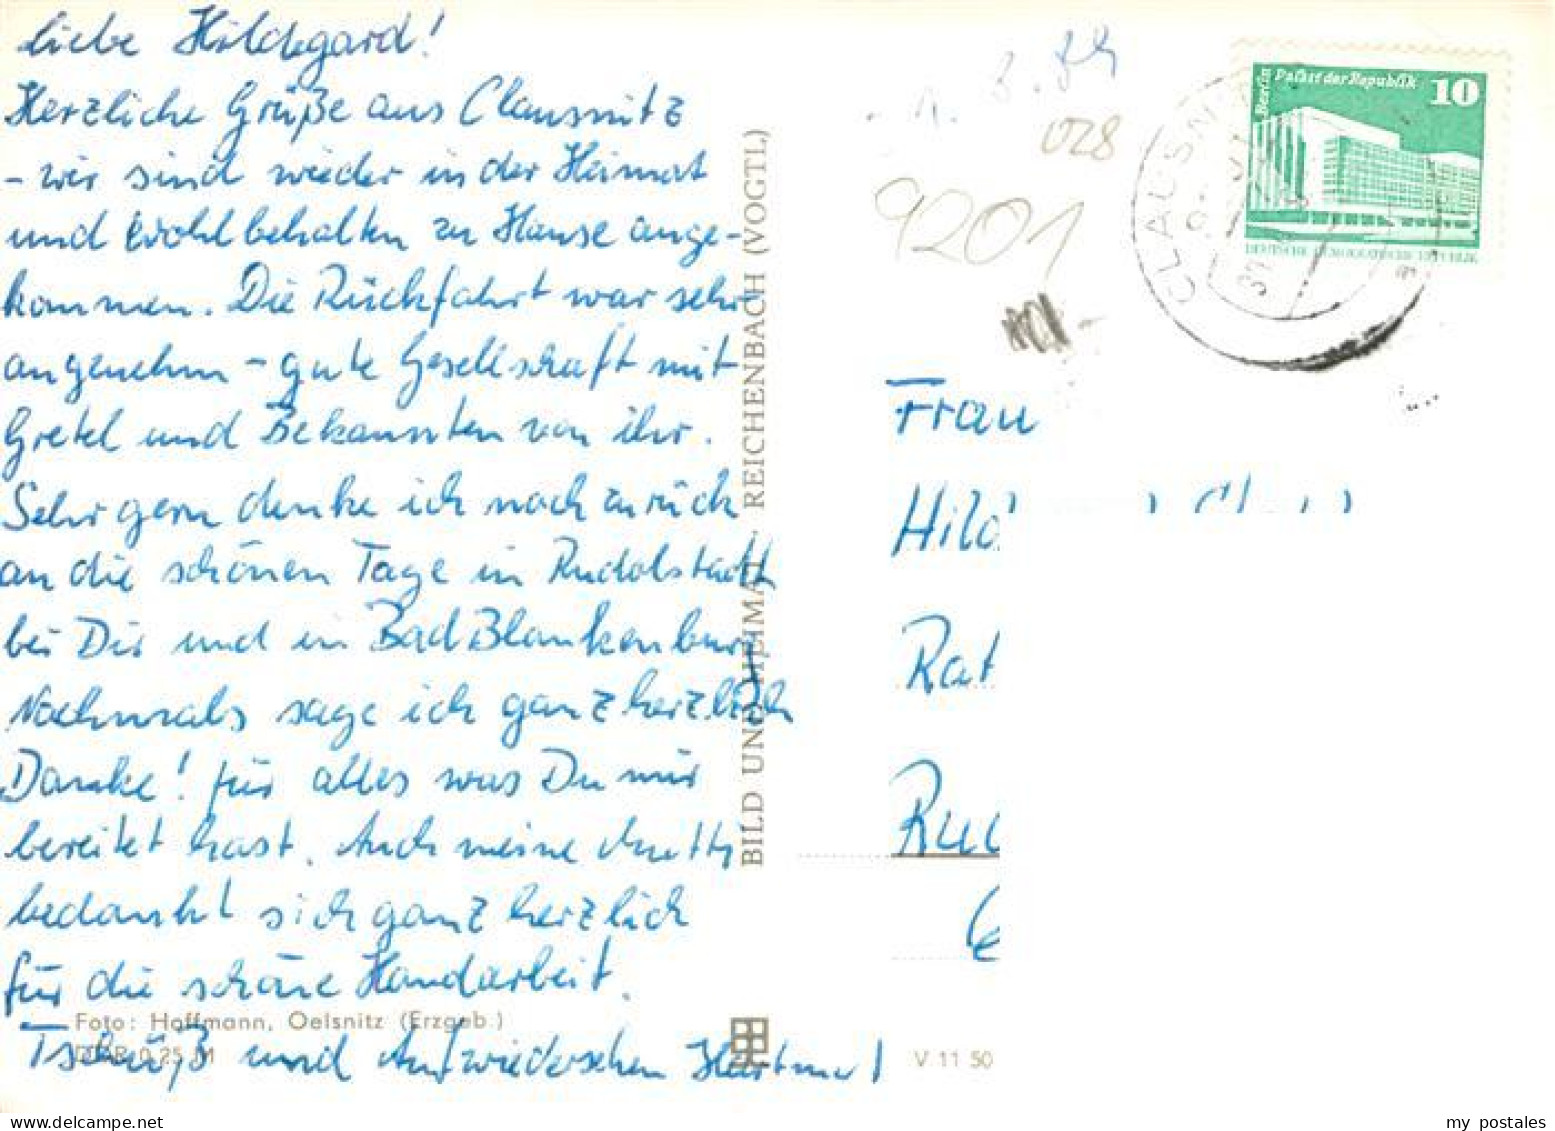 liebe Hildegard!
Herzliche Grüße aus Clausnitz
- wir sind wieder in der Heimat
und wohlbehalten zu Hause ange-
kommen. Die Rückfahrt war sehr
angenehm - gute Gesellschaft mit
Gretel und Bekannten von ihr.
Sehr gern denke ich noch zurück
an die schönen Tage in Rudolstadt
bei Dir und in Bad Blankenburg
Nochmals sage ich ganz herzlich
Danke! für alles was Du mir
bereitet hast. Auch meine Mutti
bedankt sich ganz herzlich
für die schöne Handarbeit.
Tschüß und Aufwiedersehen Hartmut
Foto: Hoffmann, Oelsnitz (Erzgeb.)
DDR 0,25 M
BILD UND HEIMAT REICHENBACH (VOGTL)
V 11 50
028
9201
Berlin Palast der Republik 10
CLAUSN
Frau
Hild
Rat
Rud
my postales